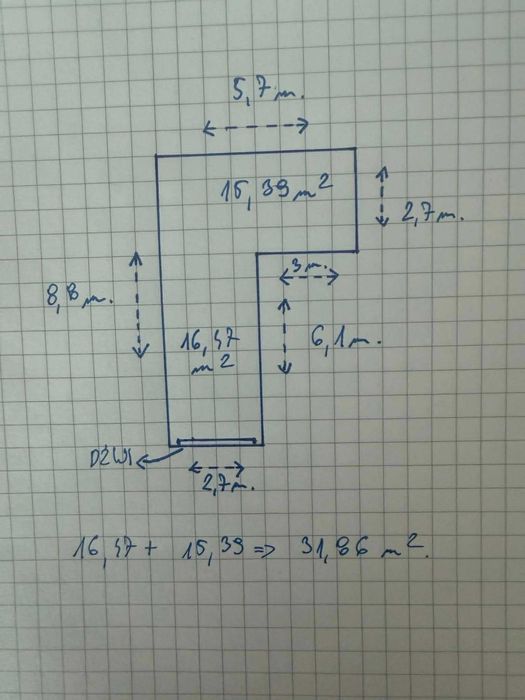 5,7 m.
15,39 m²
2,7 m.
3 m.
8,8 m.
16,47
m²
6,1 m.
DZWI
2,7 m.
16,47 + 15,39 => 31,86 m².